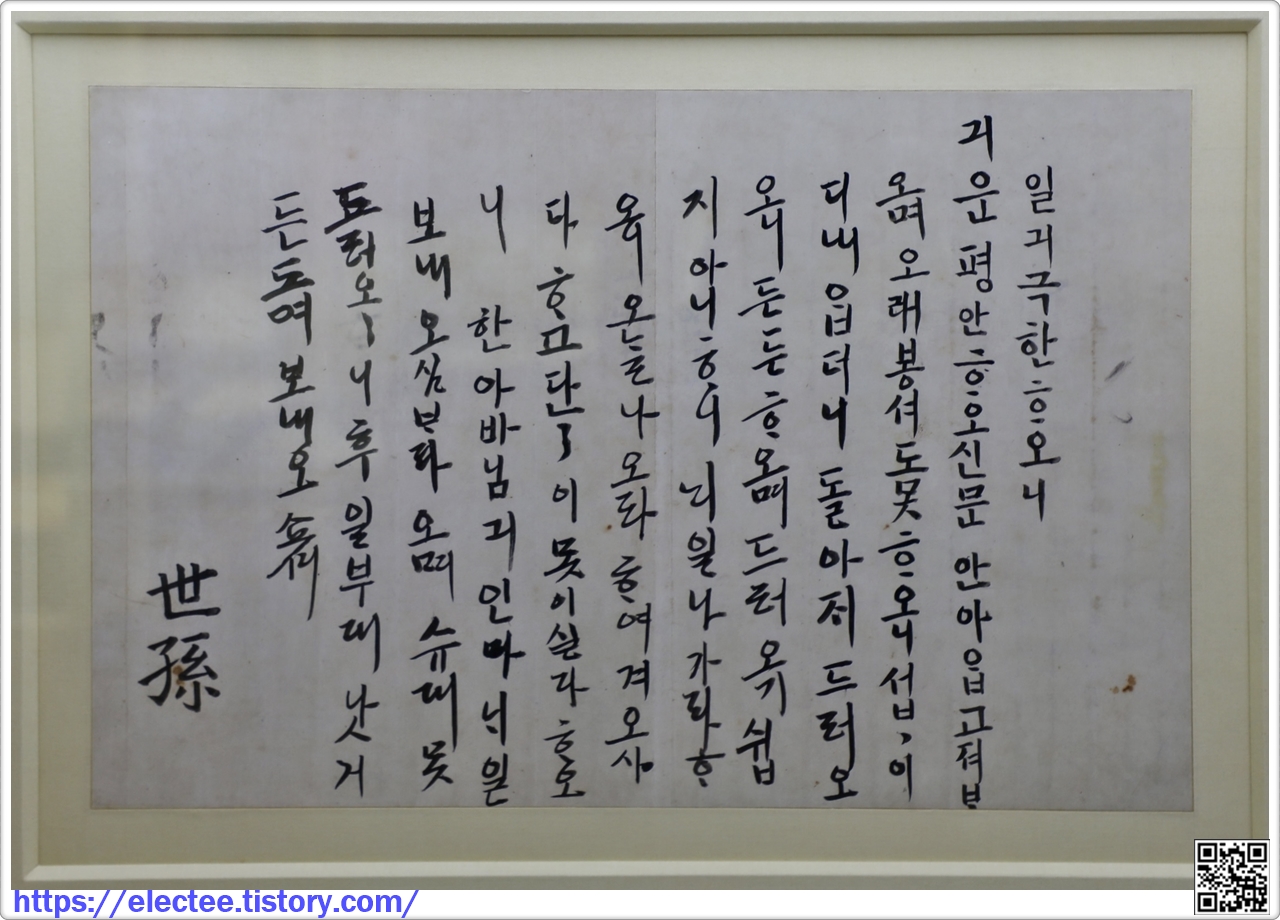 일긔극한ᄒᆞ오니
긔운평안ᄒᆞ오신문안아ᄋᆞᆸ고져ᄇᆞ
오며오래봉셔도못ᄒᆞ오니섭〻이
디내ᄋᆞᆸ더니돌아지드러오
오니든든ᄒᆞ오며드러오기쉽
지아니ᄒᆞ니ᄂᆡ일나가라ᄒᆞ
오니오ᄂᆞᆯ나오라ᄒᆞ여겨오시
다ᄒᆞ고단〻이못이실다ᄒᆞ오
니 한아바님긔인마ᄂᆡ일
보내오심ᄇᆞ라오며슈대못
드러오〻니후일부대낫거
든ᄃᆞ려보내오쇼셔
世孫
https://electee.tistory.com/